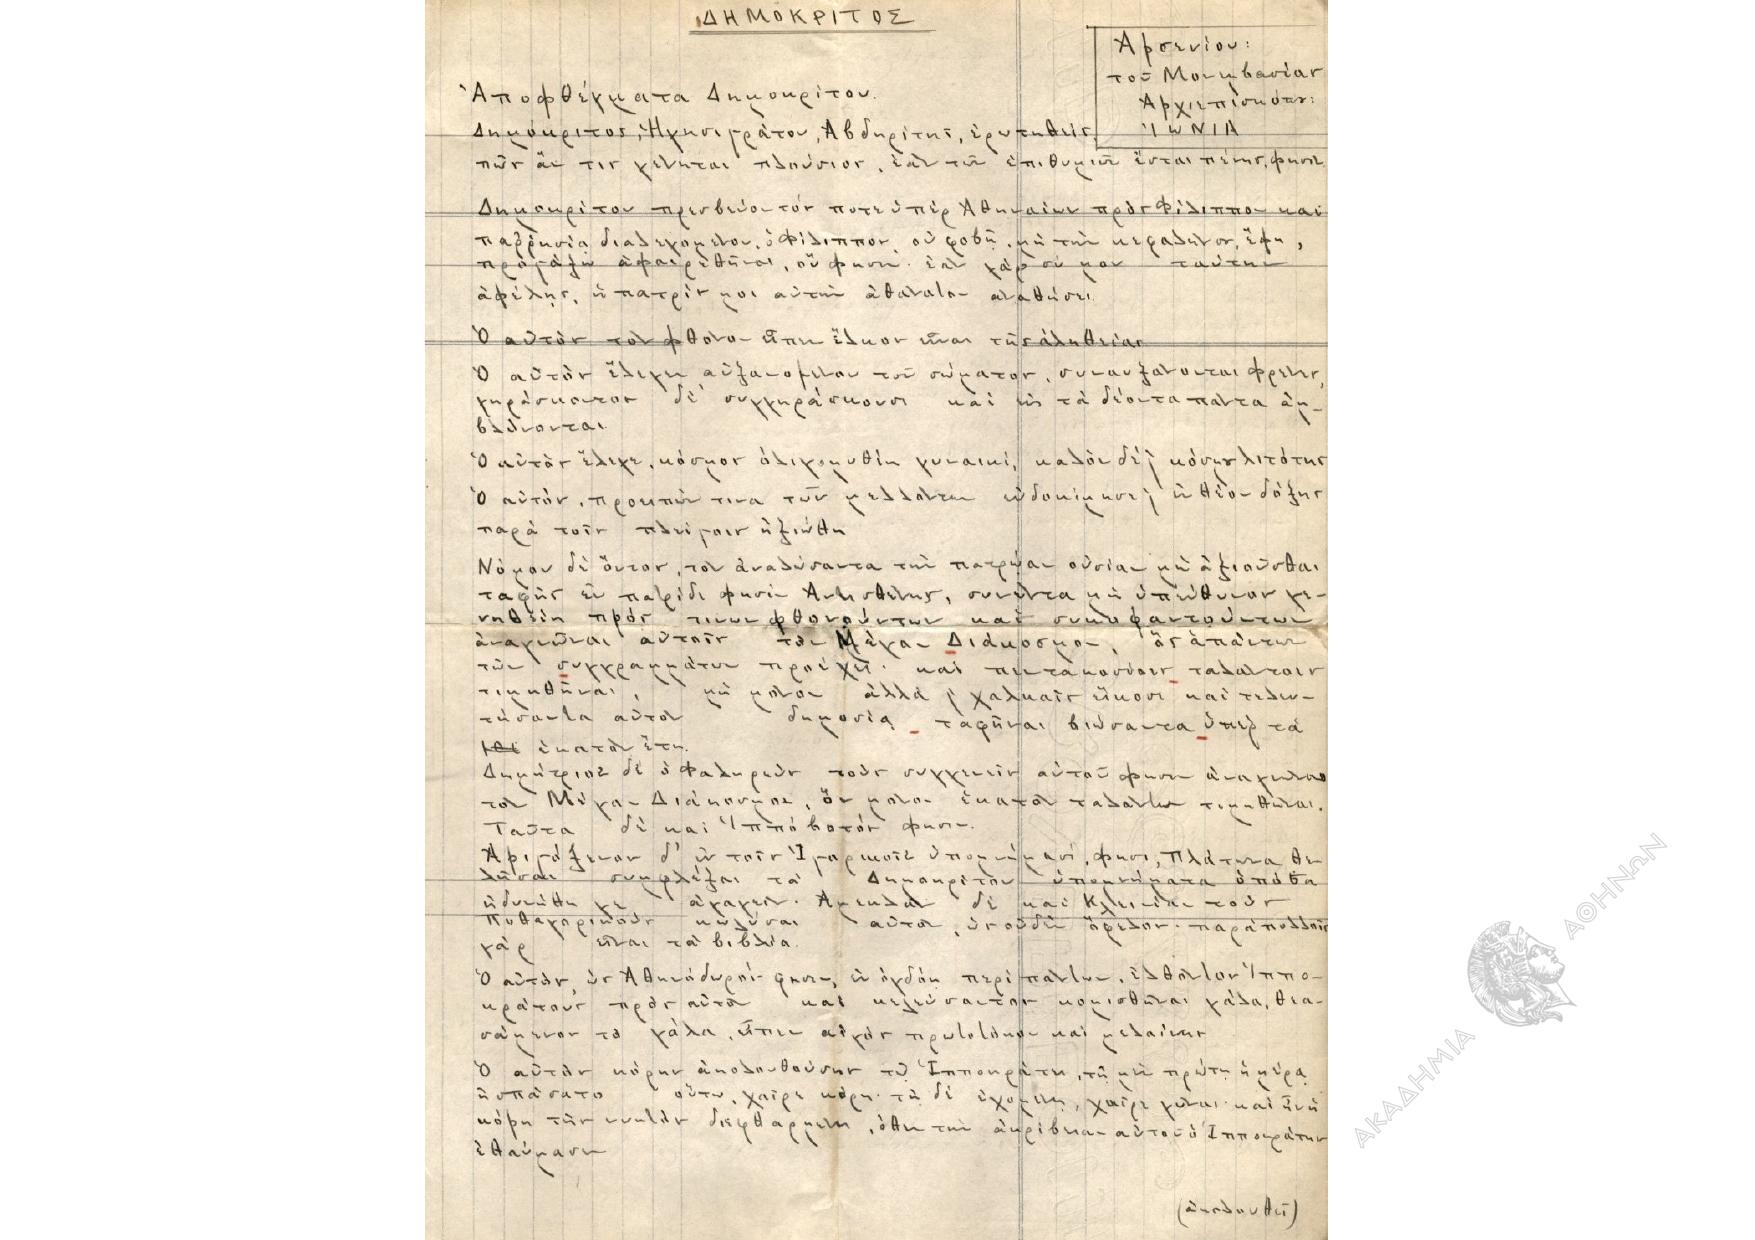 ΔΗΜΟΚΡΙΤΟΣ
Ἀρσενίου:
τοῦ Μονεμβασίας
Ἀρχιεπισκόπου:
ἸΩΝΙΑ
Ἀποφθέγματα Δημοκρίτου.
Δημόκριτος, Ἡγησιστράτου, Ἀβδηρίτης, ἐρωτηθείς,
πῶς ἄν τις γένηται πλούσιος, ἐὰν τῶν ἐπιθυμιῶν ἔσται πένης, φησίν.
Δημοκρίτου πρεσβεύοντός ποτε ὑπὲρ Ἀθηναίων πρὸς Φίλιππον καὶ
παῤῥησίᾳ διαλεγομένου, ὁ Φίλιππος, οὐ φοβῇ, μὴ τὴν κεφαλήν σου, ἔφη,
προστάξω ἀφαιρεθῆναι, οὔ φησιν· ἐὰν γὰρ σύ μου ταύτην
ἀφέλῃς, ἡ πατρίς μοι αὐτὴν ἀθάνατον ἀναθήσει.
Ὁ αὐτὸς τὸν φθόνον εἶπεν ἕλκος εἶναι τῆς ἀληθείας
Ὁ αὐτὸς ἔλεγεν αὐξανομένου τοῦ σώματος, συναυξάνονται φρένες,
γηράσκοντος δὲ συγγηράσκουσι καὶ εἰς τὰ δέοντα πάντα ἀμ-
βλύνονται.
Ὁ αὐτὸς ἔλεγε, κόσμος ὀλιγομυθίη γυναικί, καλὸν δὲ ϛ κόσμου λιτότης
Ὁ αὐτός, προειπών τινα τῶν μελλόντων εὐδοκίμησε ϛ ἐνθέου δόξης
παρὰ τοῖς πλείστοις ἠξιώθη
Νόμου δὲ ὄντος, τὸν ἀναλύσαντα τὴν πατρῴαν οὐσίαν μὴ ἀξιοῦσθαι
ταφῆς ἐν πατρίδι φησὶν Ἀντισθένης, συνέντα μὴ ὑπεύθυνος γε-
νηθείη πρός τινων φθονούντων καὶ συκοφαντούντων
ἀναγνῶναι αὐτοῖς τὸν Μέγαν Διάκοσμον, ὃς ἁπάντων
τῶν συγγραμμάτων προέχει· καὶ πεντακοσίοις ταλάντοις
τιμηθῆναι, μὴ μόνον ἀλλὰ ϛ χαλκαῖς εἴκοσι καὶ τελευ-
τήσαντα αὐτὸν δημοσίᾳ ταφῆναι βιώσαντα ὑπὲρ τὰ
ἑκατὸν ἔτη.
Δημήτριος δὲ ὁ Φαληρεὺς τοὺς συγγενεῖς αὐτοῦ φησιν ἀναγνῶναι
τὸν Μέγαν Διάκοσμον, ὃν μόνον ἑκατὸν ταλάντων τιμηθῆναι.
Ταῦτα δὲ καὶ Ἱππόβοτός φησιν.
Ἀριστόξενος δ' ἐν τοῖς Ἱστορικοῖς ὑπομνήμασί, φησι, Πλάτωνα θε-
λῆσαι συμφλέξαι τὰ Δημοκρίτου ὑπομνήματα ὁπόσα
ἠδυνήθη συναγαγεῖν· Ἀμύκλαν δὲ καὶ Κλεινίαν τοὺς
Πυθαγορικοὺς κωλῦσαι αὐτόν, ὡς οὐδὲν ὄφελος· παρὰ πολλοῖς
γὰρ εἶναι τὰ βιβλία.
Ὁ αὐτός, ὡς Ἀθηνόδωρός φησιν, ἐν ὀγδόῃ περιπάτων, ἐλθόντος Ἱππο-
κράτους πρὸς αὐτὸν καὶ κελεύσαντος κομισθῆναι γάλα, θεα-
σάμενος τὸ γάλα, εἶπεν αἰγὸς πρωτοτόκου καὶ μελαίνης
Ὁ αὐτὸς κόρην ἀκολουθούσης τῷ Ἱπποκράτει, τῇ μὲν πρώτῃ ἡμέρᾳ
ἠσπάσατο οὕτω, χαῖρε κόρη· τῇ δὲ ἐχομένῃ, χαῖρε γύναι· καὶ ἦν ἡ
κόρη τῆς νυκτὸς διεφθαρμένη, ὅθεν τὴν ἀκρίβειαν αὐτοῦ ὁ Ἱπποκράτης
ἐθαύμασεν
(ἀκολουθεῖ)
ΑΚΑΔΗΜΙΑ ΑΘΗΝΩΝ